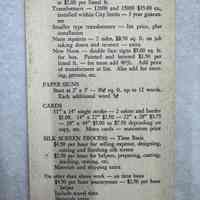 at $7.00 per lineal ft.
Transformers — 12000 and 15000 $15.00 ea.
installed within City limits — 1 year guaran-
tee
Smaller type transformers — list price, plus
installation
Neon repairs — 2 sides, $8.50 sq. ft. on job
taking down and remount — extra
New Neon — double face signs $7.00 sq. ft.
for box. Painted and lettered
lineal ft. — for neon add 40%. Add price
of transformer at list. Also add for steer-
ing, permits, etc.
PAPER SIGNS
Start at 2' x 3' — sq. ft. up to 12 words.
Each additional word 5¢
CARDS
11" x 14" single stroke — 2 colors and border
$1.00. 14" x 22" $2.00 — 22" x 28" $3.75
— 28" x 44" $5.00 to $7.50 depending on
copy, etc. More cards — maximum price
SILK SCREEN PROCESS — Time Basis
$4.50 per hour for selling expense, designing,
cutting and finishing silk screen
$2.50 per hour for helpers, preparing, cutting,
stacking, racking, etc.
Materials and shipping extra
On other than above work — on time basis
$4.50 per hour journeyman — $2.50 per hour
helper
Include travel time